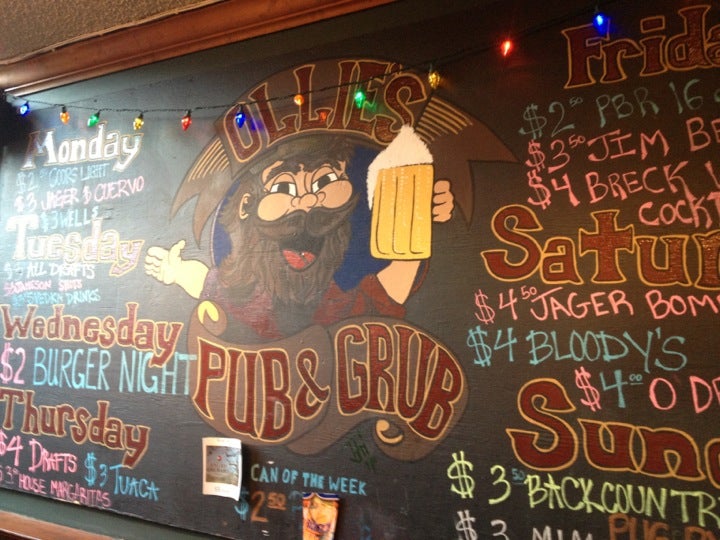 OLLIE'S
PUB & GRUB
Monday
$2 COORS LIGHT
$3 JAGER & CUERVO
$3 WELLS
Tuesday
ALL DRAFTS
JAMESON SHOTS
DRINKS
Wednesday
$2 BURGER NIGHT
Thursday
$4 DRAFTS
$3 TUACA
HOUSE MARGARITAS
CAN OF THE WEEK
$2.50
Frida
$2.50 PBR 16
$3.50 JIM BE
$4 BRECK
COCKT
Satur
$4.50 JAGER BOM
$4 BLOODY'S
$4.00 O DR
Sund
$3.50 BACKCOUNTR
$3 MIM